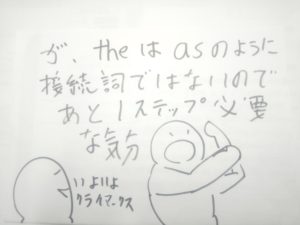 が、theはasのように
接続詞ではないので
あと1ステップ必要
な気分
いよいよ
クライマックス